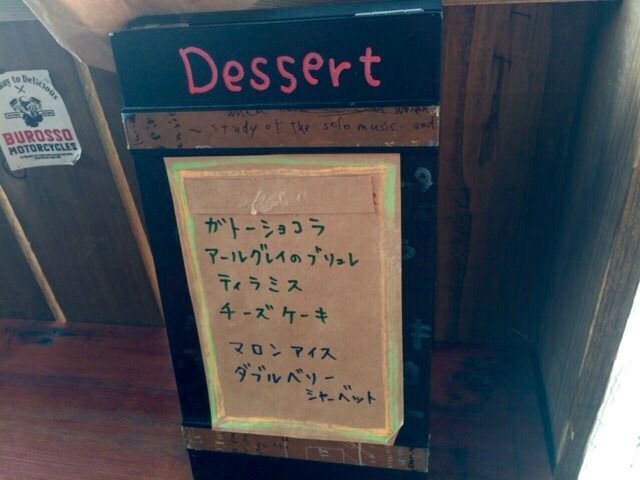 Dessert
study of the solo music and
way to Delicious
BUROSSO
MOTORCYCLES
ガトーショコラ
アールグレイのブリュレ
ティラミス
チーズケーキ
マロンアイス
ダブルベリー
シャーベット